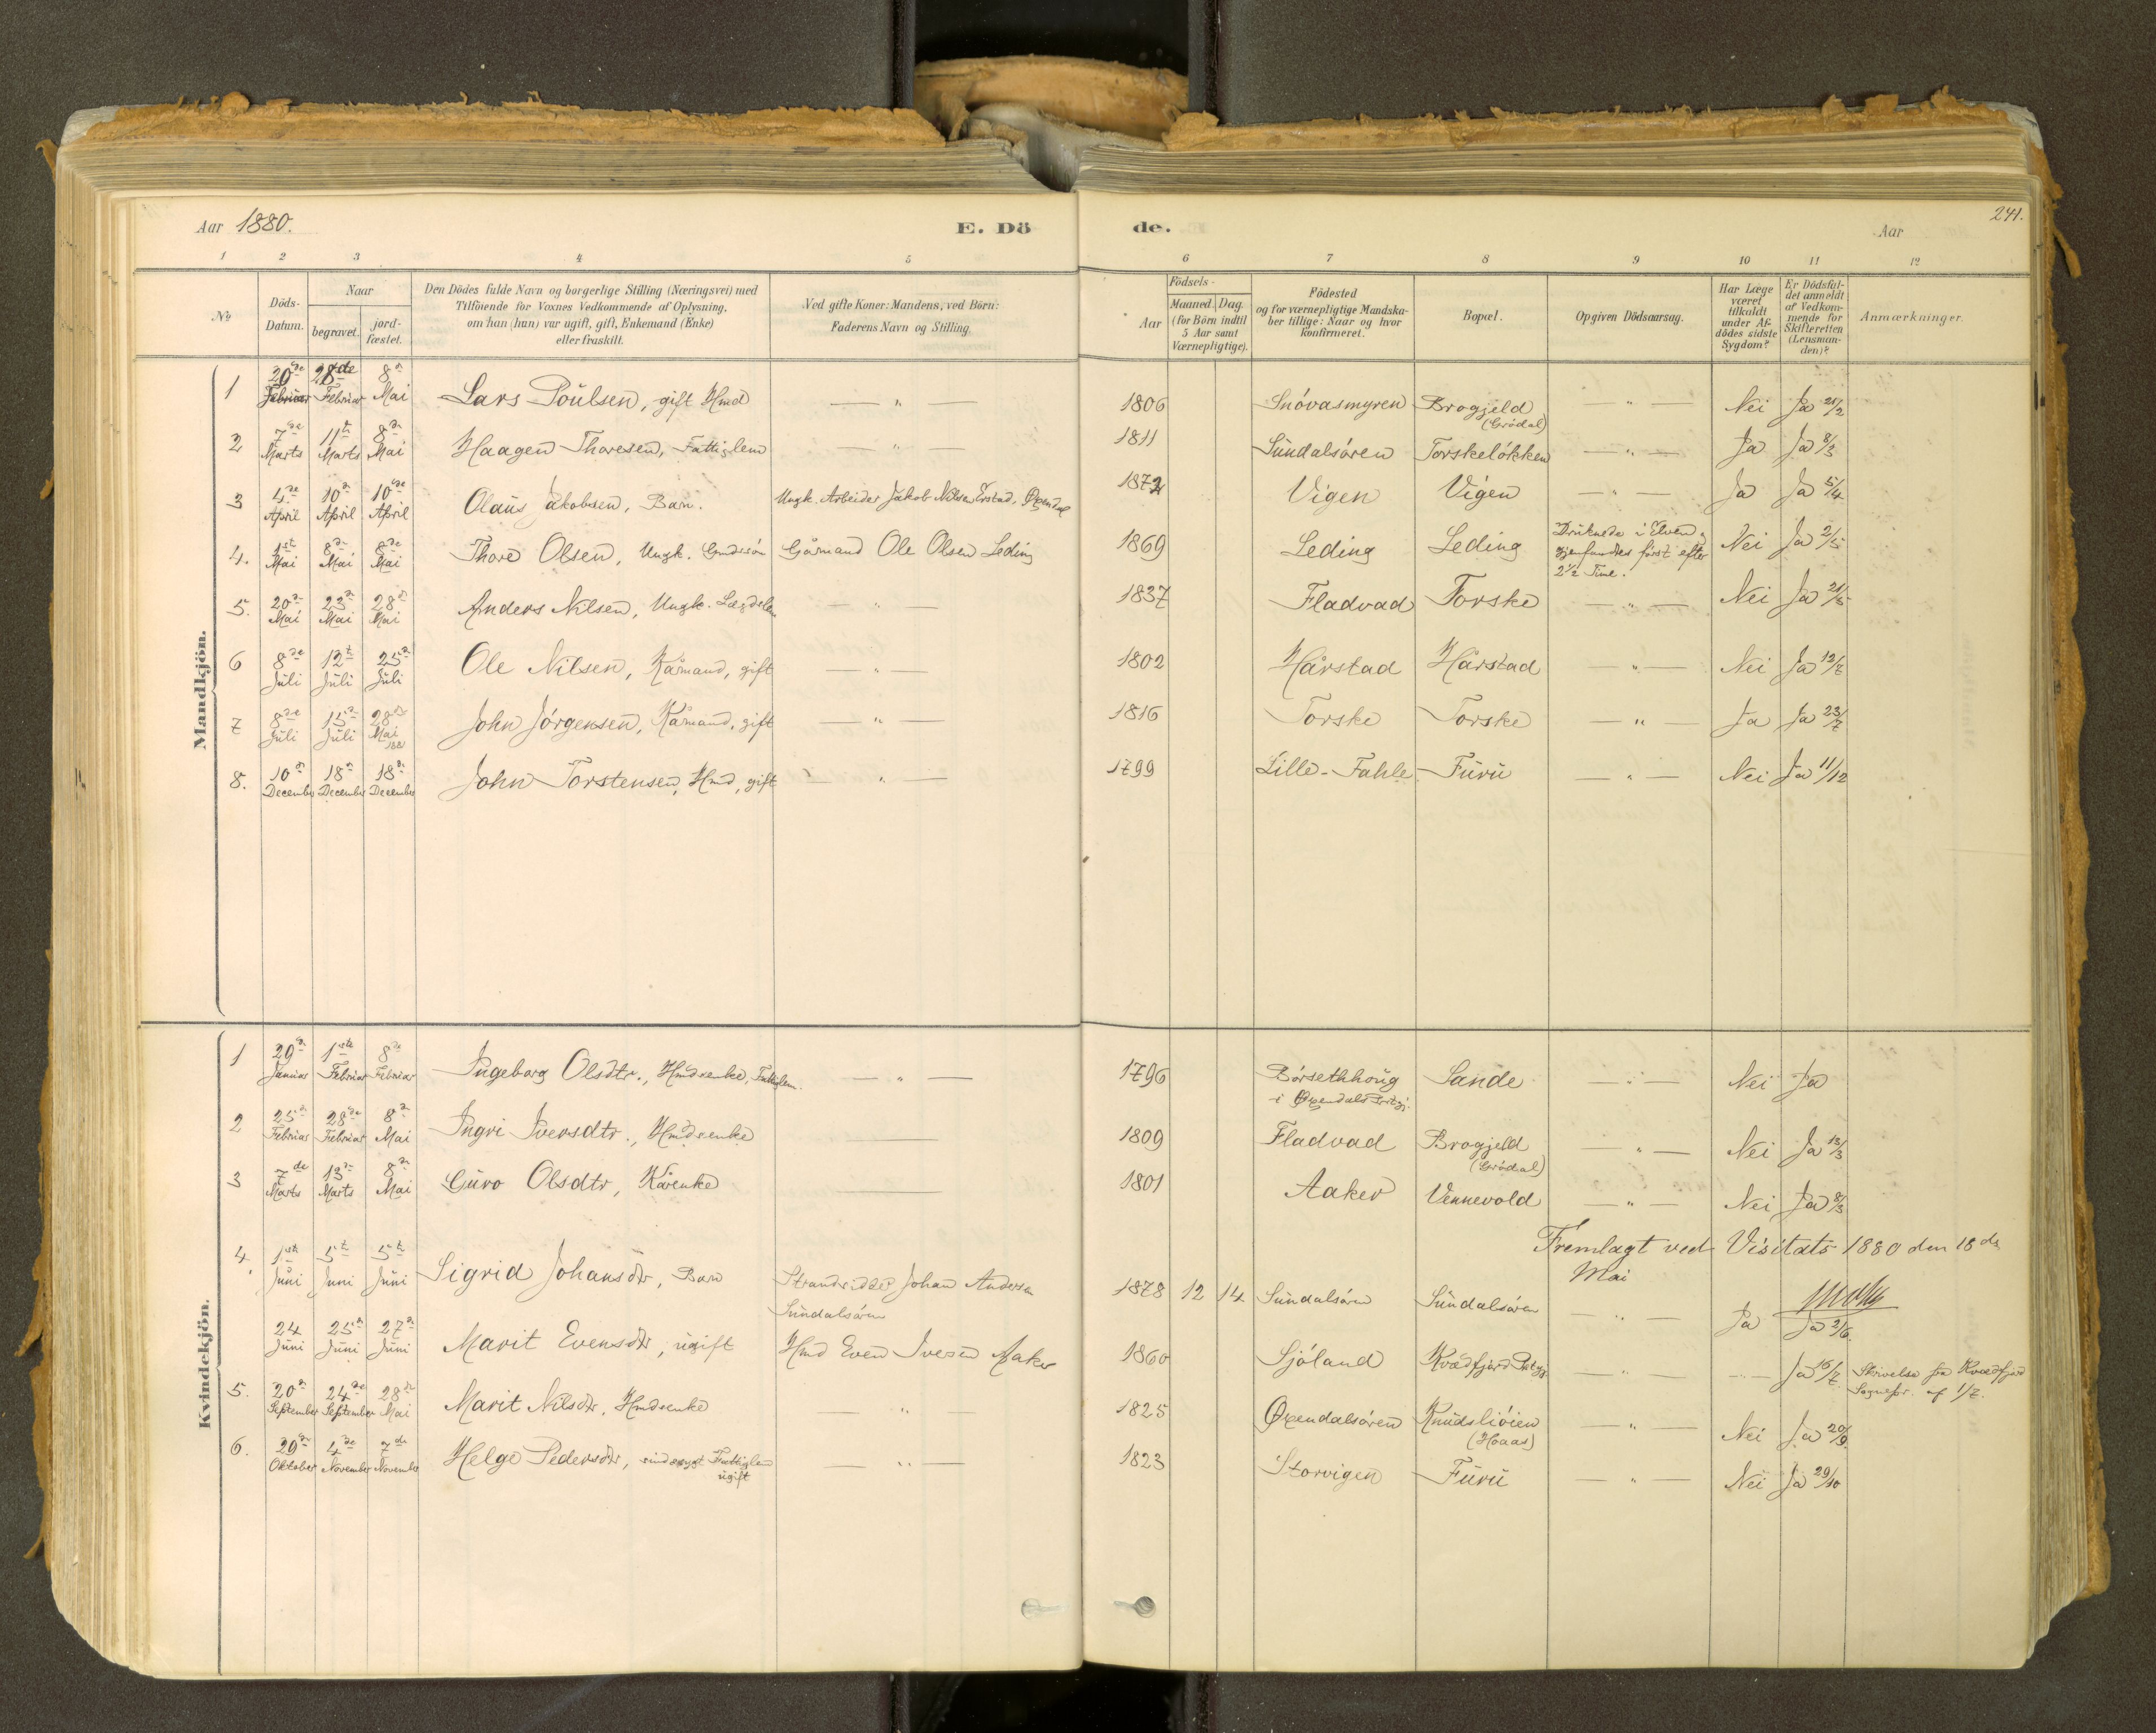 Aar 1880. E. Dö de. Aar 241.
1 2 3 4 5 6 7 8 9 10 11 12
No
Döds-Datum.
Naar
begravet.
jord-fæstet.
Den Dödes fulde Navn og borgerlige Stilling (Næringsvei) med
Tilföiende for Voxnes Vedkommende af Oplysning,
om han (hun) var ugift, gift, Enkemand (Enke)
eller fraskilt.
Ved gifte Koner: Mandens, ved Börn:
Faderens Navn og Stilling.
Födsels-
Aar
Maaned. Dag.
(for Börn indtil
5 Aar samt
Værnepligtige).
Födested
og for værnepligtige Mandska-
ber tillige: Naar og hvor
konfirmeret.
Bopæl.
Opgiven Dödsaarsag.
Har Læge
været
tilkaldt
under Af-
dödes sidste
Sygdom?
Er Dödsfal-
det anmeldt
af Vedkom-
mende for
Skifteretten
(Lensman-
den)?
Anmærkninger.
Mandkjön.
1 20de Februar 28de Februar 8de Mai Lars Poulsen, gift Hmd — " — 1806 Snóvasmyren Brogjeld (Grödal) — " — Nei Ja 21/2
2 7de Marts 11te Marts 8de Mai Haagen Thoresen, Fattiglem — " — 1811 Sundalsören Torskelökken — " — Ja Ja 8/3
3 4de April 10de April 10de April Olaus Jakobsen, Barn. Ungk. Arbeider Jakob Nilsen Erstad, Öxendal 1872 Vigen Vigen — " — Ja Ja 5/4
4. 1ste Mai 8de Mai 8de Mai Thore Olsen, Ungk. Gmdssön Gårmand Ole Olsen Leding 1869 Leding Leding Druknede i Elven, gjenfundtes först efter 2½ Time. Nei Ja 2/5
5. 20de Mai 23de Mai 28de Mai Anders Nilsen, Ungk. Lægdslem — " — 1837 Fladvad Torske — " — Nei Ja 21/5
6 8de Juli 12te Juli 25de Juli Ole Nilsen, Kåmand, gift — " — 1802 Hårstad Hårstad — " — Nei Ja 12/7
7 8de Juli 15de Juli 28de Mai 1881 John Jörgensen, Kåmand, gift — " — 1816 Torske Torske — " — Ja Ja 23/7
8. 10de December 18de December 18de December John Torstensen, Hmd, gift — " — 1799 Lille-Fahle Furu — " — Nei Ja 11/12
Kvindekjön.
1 29de Januar 1ste Februar 8de Februar Ingeborg Olsdtr., Hmdsenke, Fattiglem. — " — 1796 Börsethhoug i Öxendals Prstgj. Sande — " — Nei Ja
2 25de Februar 28de Februar 8de Mai Ingri Iversdtr., Hmdsenke — 1809 Fladvad Brogjeld (Grödal) — " — Nei Ja 13/3
3 7de Marts 13de Marts 8de Mai Guro Olsdtr, Kårenke — 1801 Aaker Vennevold — " — Nei Ja 8/3
Fremlagt ved Visitats 1880 den 18de
Mai
4. 1ste Juni 5te Juni 5te Juni Sigrid Johansdtr, Barn Strandsidder Johan Andersen Sundalsören 1878 12 14 Sundalsören Sundalsören — " — Ja Ja 2/6.
24 Juni 25de Juni 27de Juni Marit Evensdtr, ugift Hmd Even Ivesen Aaker 1860 Sjöland Kvædfjord Prstgj. — " — — Ja 16/7 Skrivelse fra Kvædfjord Sognepr. af 1/7.
5. 20de September 24de September 28de Mai Marit Nilsdtr, Hmdsenke — " — 1825 Öxendalsören Knudsliöien (Hoaas) — " — Nei Ja 20/9.
6. 29de Oktober 4de November 7de November Helge Pedersdtr, sindssyg Fattiglem ugift — " — 1823 Storvigen Furu — " — Nei Ja 29/10